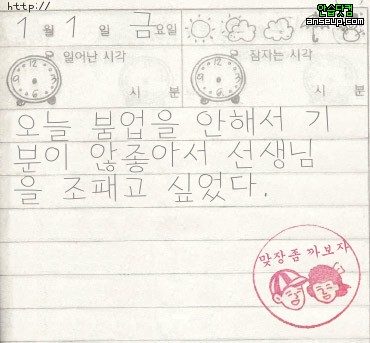 http://
안습닷컴
anseup.com
1 월 1 일 금요일
일어난 시각 잠자는 시각
시 분 시 분
오늘 붐업을 안해서 기
분이 않좋아서 선생님
을 조패고 싶었다.
맞장좀까보자